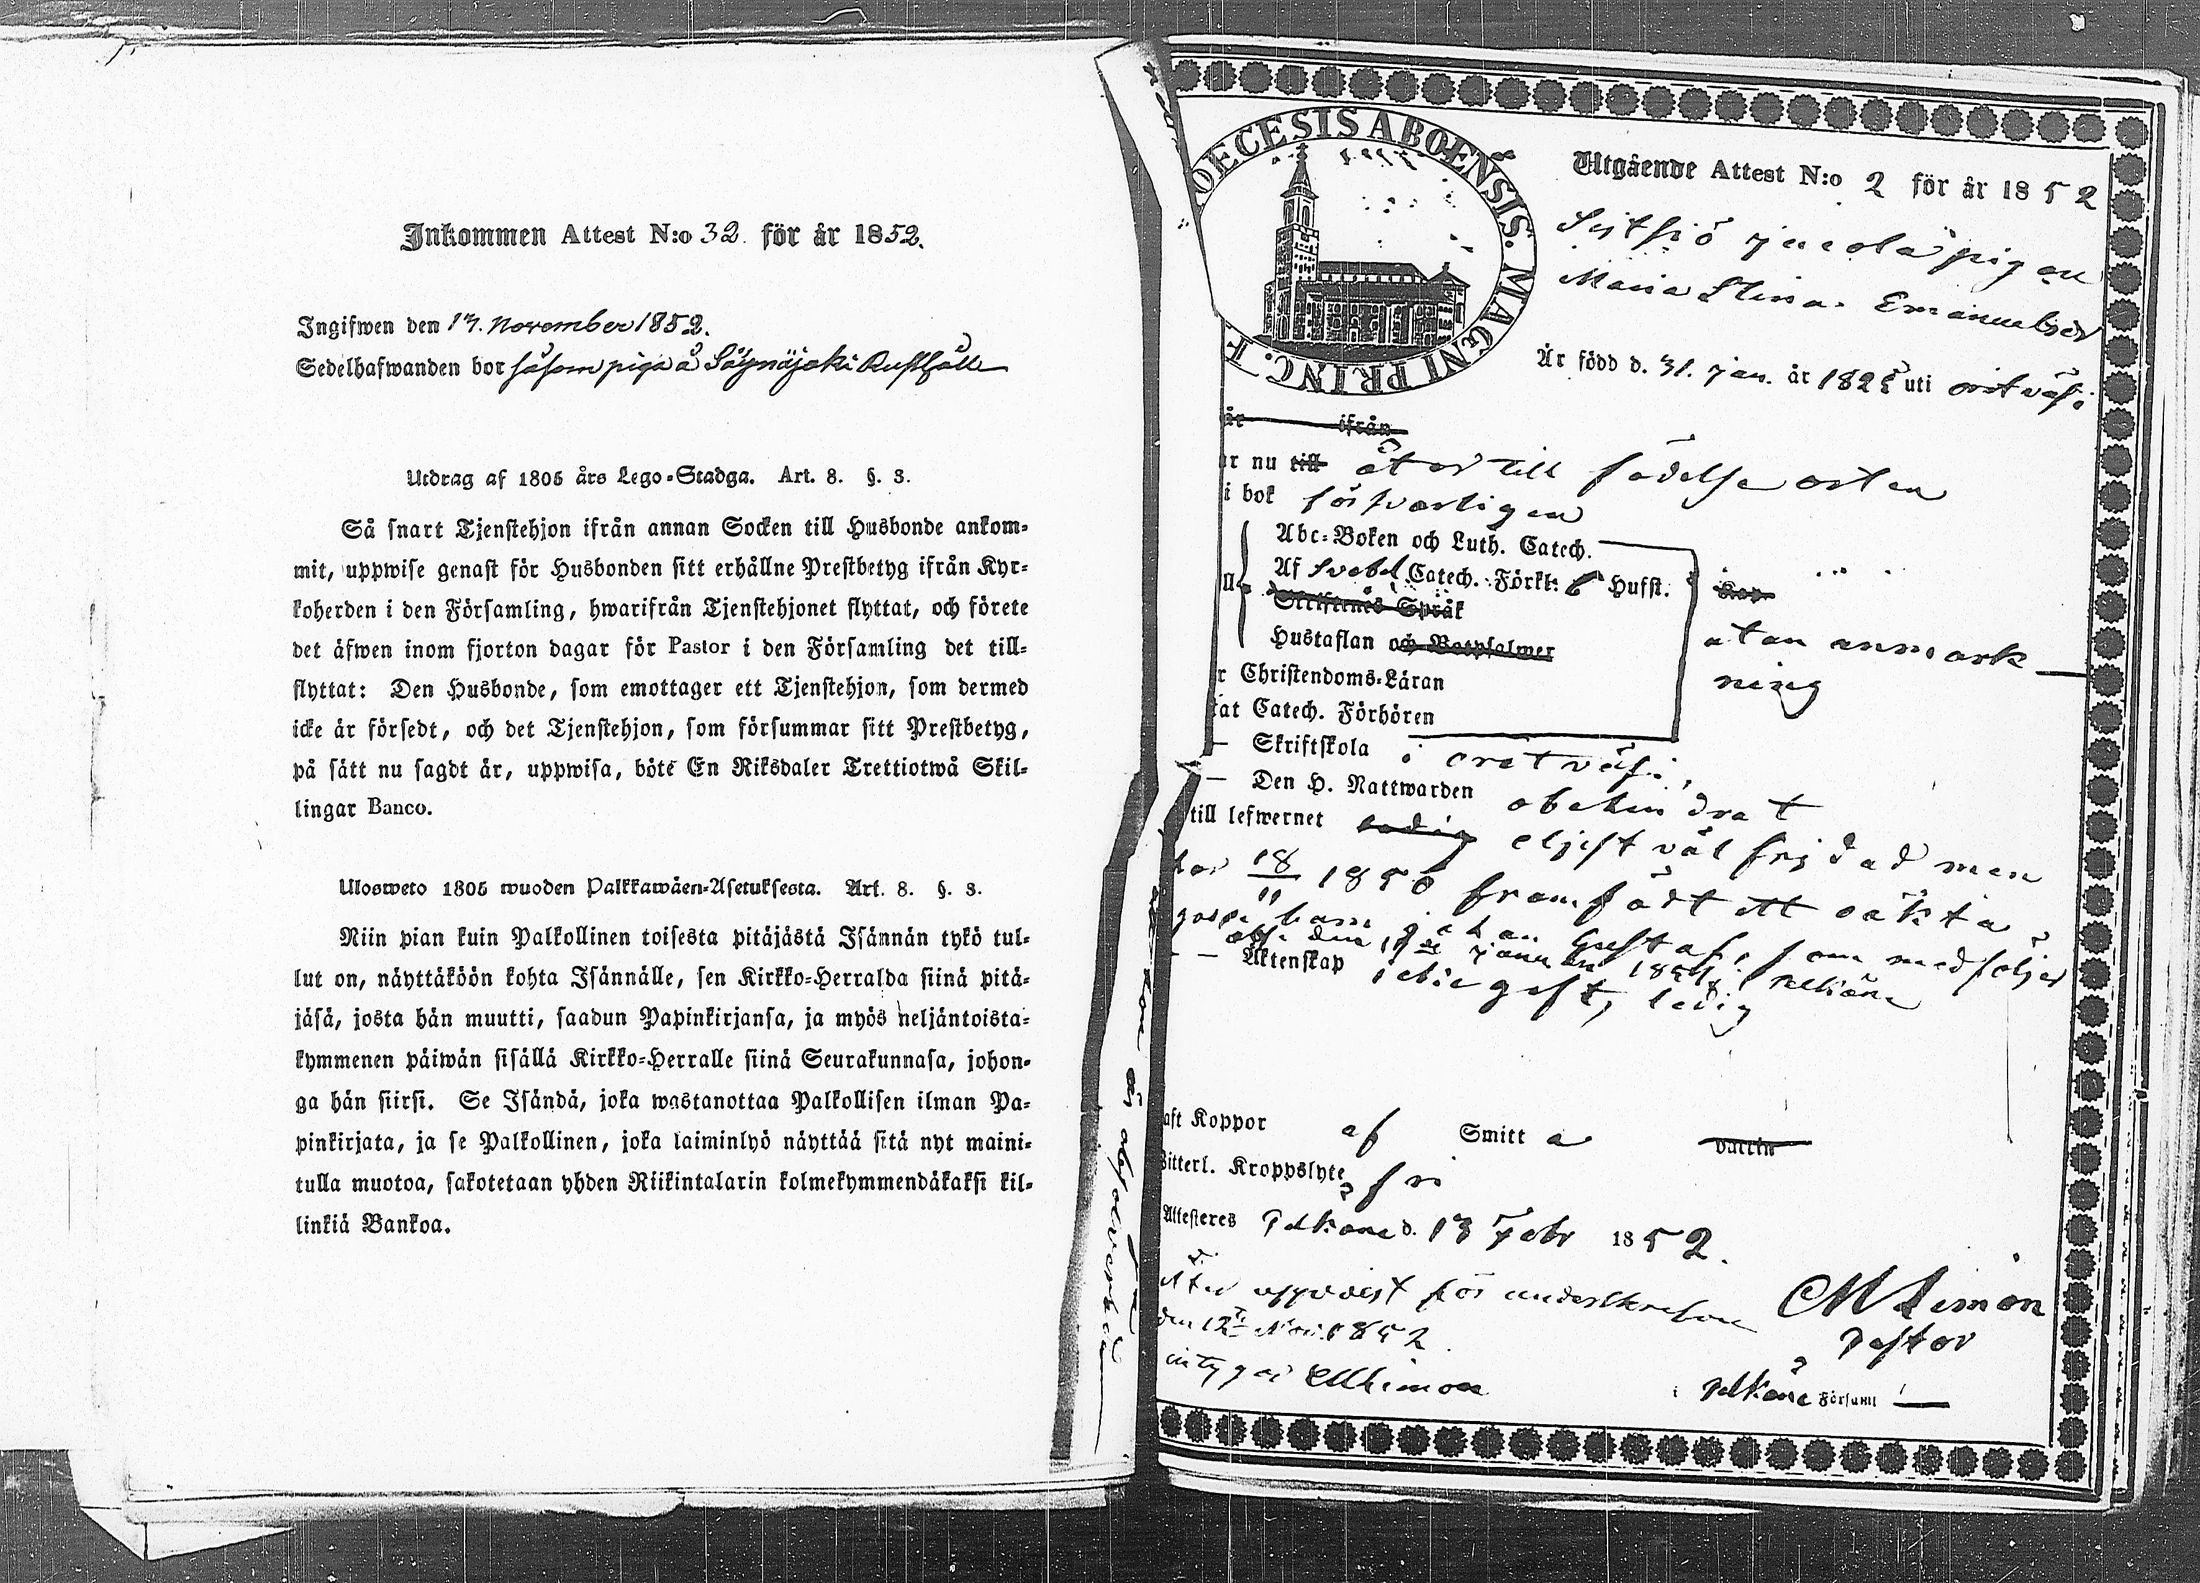 Inkommen Attest N:o 32. för år 1852.
Ingifwen den 17. November 1852.
Sedelhafwanden bor såsom piga å Rusthåll
Utdrag af 1805 års Lego-Stadga. Art. 8. §. 3.
Så snart Tjenstehjon ifrån annan Socken till Husbonde ankom-
mit, uppwise genast för Husbonden sitt erhållne Prestbetyg ifrån Kyr-
koherden i den Församling, hwarifrån Tjenstehjonet flyttat, och förete
det äfwen inom fjorton dagar för Pastor i den Församling det till-
flyttat: Den Husbonde, som emottager ett Tjenstehjon, som dermed
icke är försedt, och det Tjenstehjon, som försummar sitt Prestbetyg,
på sätt nu sagdt är, uppwisa, böte En Riksdaler Trettiotwå Skil-
lingar Banco.
Ulosweto 1805 wuoden Palkkawäen-Asetuksesta. Art. 8. §. 3.
Niin pian kuin Palkollinen toisesta pitäjästä Isännän tykö tul-
lut on, näyttäköön kohta Isännälle, sen Kirkko-Herralda siinä pitä-
jäsä, josta hän muutti, saadun Papinkirjansa, ja myös neljäntoista-
kymmenen päiwän sisällä Kirkko-Herralle siinä Seurakunnasa, johon-
ga hän siirsi. Se Isändä, joka wastanottaa Palkollisen ilman Pa-
pinkirjata, ja se Palkollinen, joka laiminlyö näyttää sitä nyt maini-
tulla muotoa, sakotetaan yhden Riikintalarin kolmekymmendäkaksi kil-
linkiä Bankoa.
OECESIS ABOENSIS. MAGNI PRINC. F
Utgående Attest N:o 2 för år 1852
pigan
Maria Stina Emanuelsdr
Är född d. 31. Jan. år 182 uti Oritväsi
är ifrån
r nu till åter till födelse orten
i bok försvarligen
Abc-Boken och Luth. Catech.
Af Svebel Catech. Förkl: 6 Husst.
Skriftenes Språk
Hustaflan och Botpsalmer
utan anmärk-
ning
r Christendoms-Läran
tat Catech. Förhören
Skriftskola i Oritväsi,
Den H. Nattwarden obehindrat
till lefwernet ledig eljest väl frejdad men
har 18/11 1850 framfödt ett oäkta
gosse barn Johan Gustaf, som medföljer
Äktenskap icke gift, ledig
aft Koppor af Smitta
Bitterl. Kroppslyte fri
Attesteres Pelkäne d. 13 Febr 1852.
Åter uppvist för underskrefven
den 12 Nov. 1852
intygar
Pastor
i Pelkäne Församl